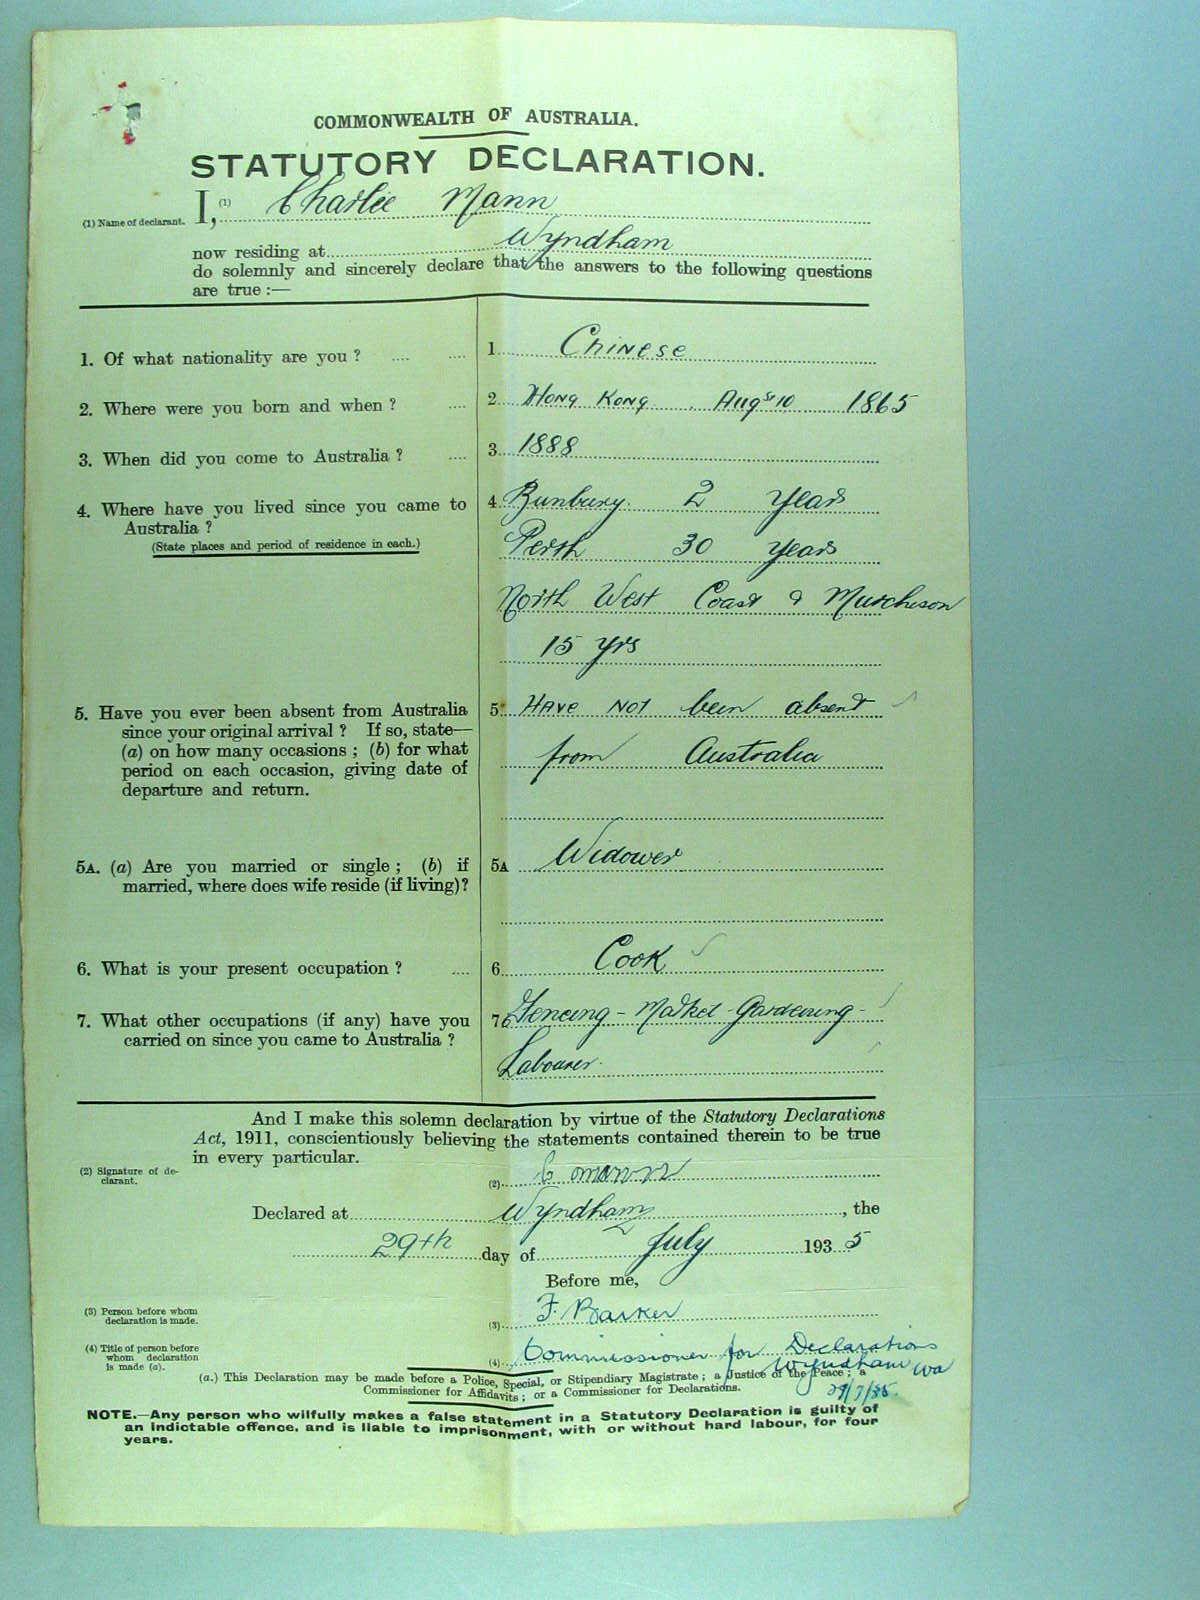 COMMONWEALTH OF AUSTRALIA.
STATUTORY DECLARATION.
(1) Name of declarant. I, (1) Charlie Mann
now residing at Wyndham
do solemnly and sincerely declare that the answers to the following questions
are true :—
1. Of what nationality are you ? .... .... 1 Chinese
2. Where were you born and when ? .... 2 Hong Kong. Augst 10 1865
3. When did you come to Australia ? .... 3 1888
4. Where have you lived since you came to 4 Bunbury. 2 years
Australia ?
(State places and period of residence in each.) Perth 30 years
North West Coast & Murchison
15 yrs
5. Have you ever been absent from Australia 5 Have not been absent
since your original arrival ? If so, state—
(a) on how many occasions ; (b) for what from Australia
period on each occasion, giving date of
departure and return.
5A. (a) Are you married or single ; (b) if 5A Widower
married, where does wife reside (if living)?
6. What is your present occupation ? .... 6 Cook
7. What other occupations (if any) have you 7 Fencing - Market - Gardening -
carried on since you came to Australia ?
Labourer.
And I make this solemn declaration by virtue of the Statutory Declarations
Act, 1911, conscientiously believing the statements contained therein to be true
in every particular.
(2) Signature of de-
clarant. (2) C mann
Declared at Wyndham, the
29th day of July 1935
Before me,
(3) Person before whom
declaration is made. (3) F. Barker
(4) Title of person before
whom declaration
is made (a). (4) Commissioner for Declarations
Wyndham Wa
29/7/35.
(a.) This Declaration may be made before a Police, Special, or Stipendiary Magistrate ; a Justice of the Peace ; a
Commissioner for Affidavits ; or a Commissioner for Declarations.
NOTE.—Any person who wilfully makes a false statement in a Statutory Declaration is guilty of
an indictable offence, and is liable to imprisonment, with or without hard labour, for four
years.